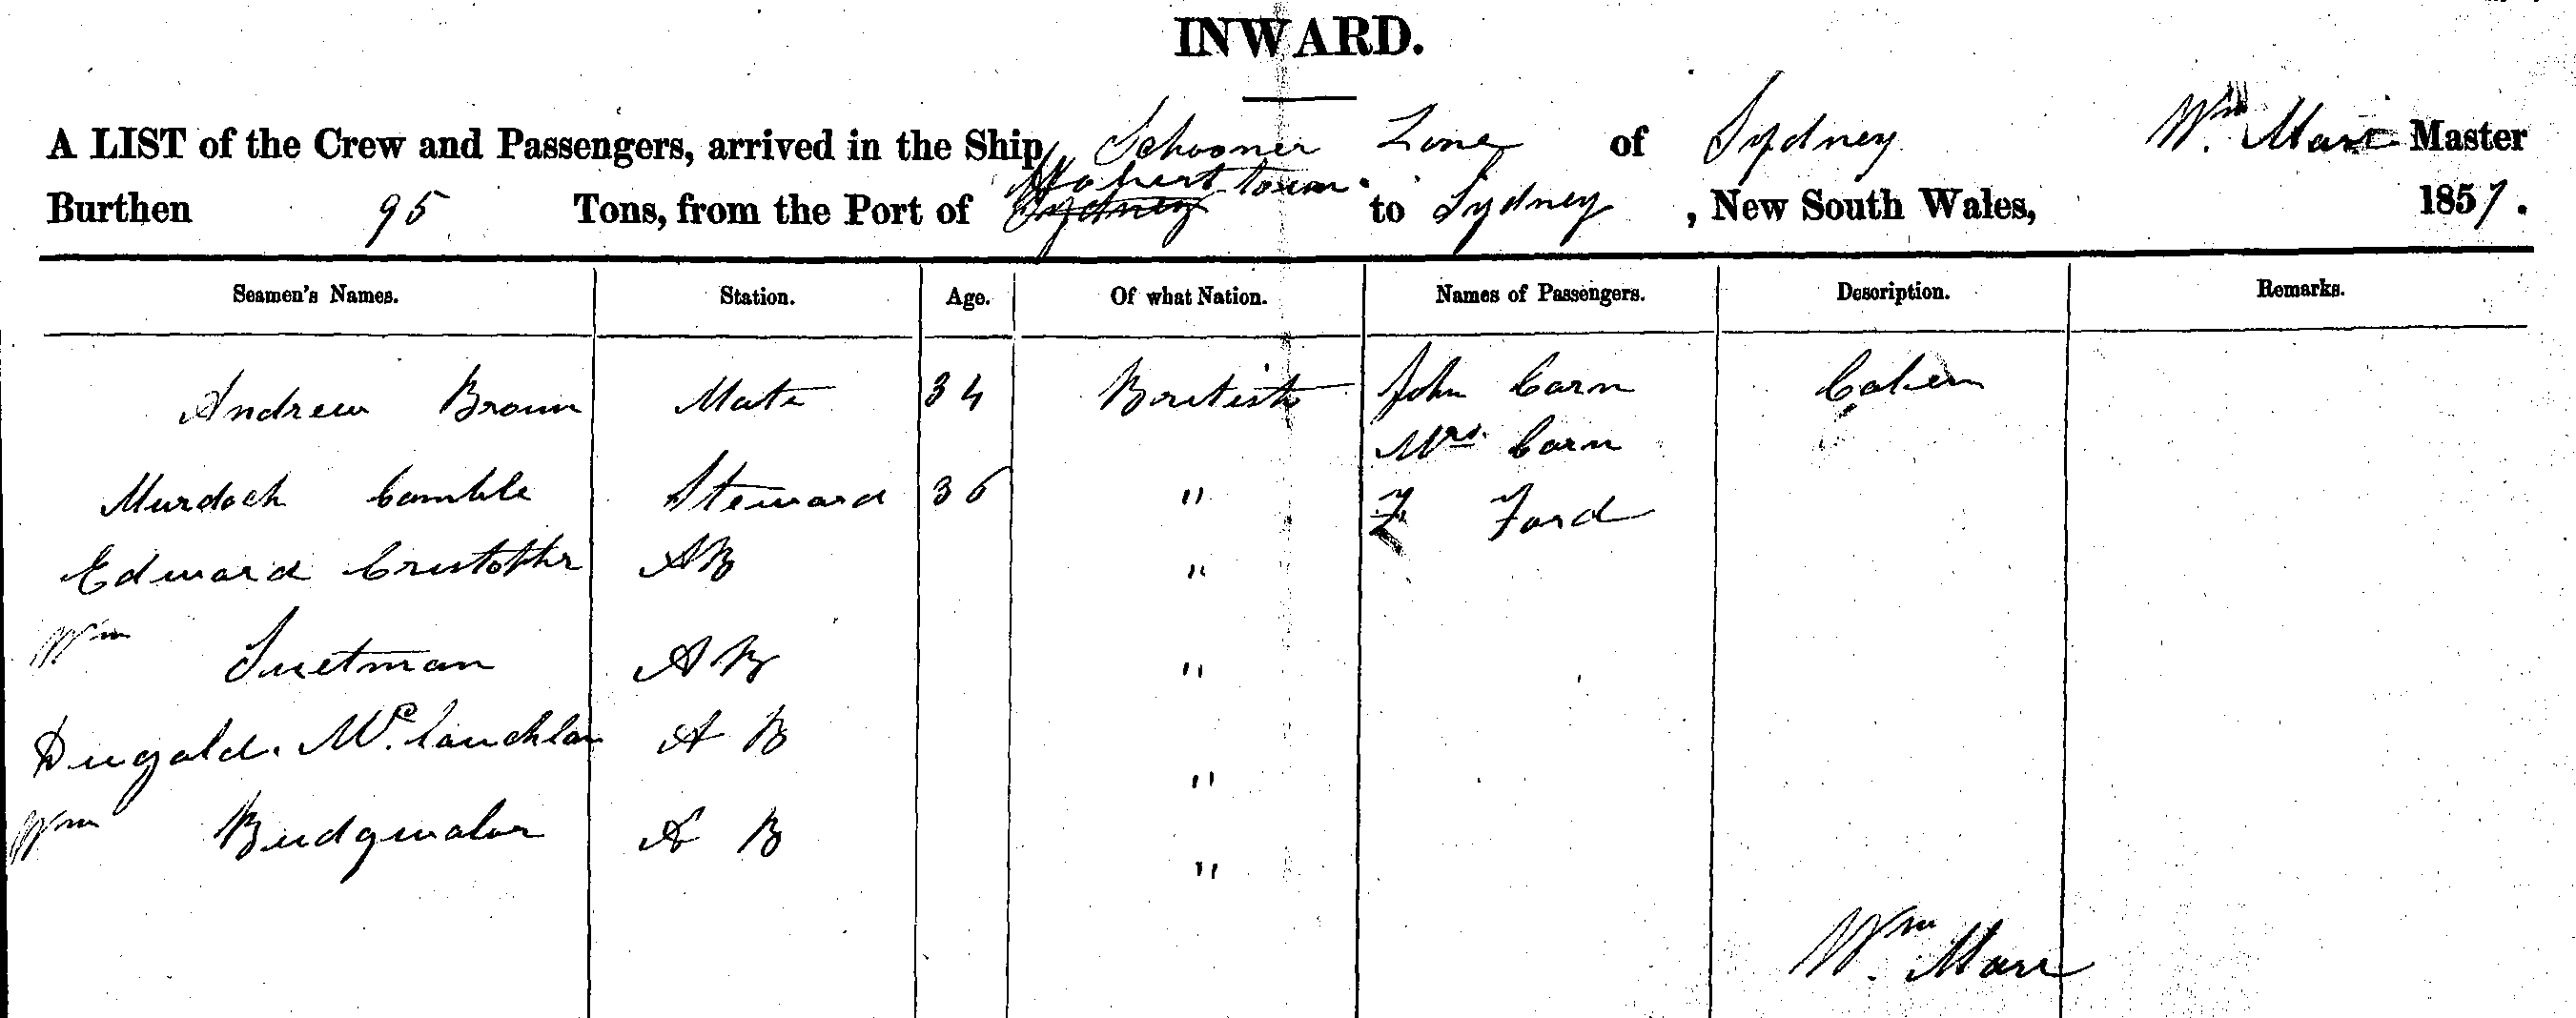 INWARD.
A LIST of the Crew and Passengers, arrived in the Ship Schooner Zone of Sydney Wm. Marr Master
Burthen 95 Tons, from the Port of Sydney Hobert town. to Sydney, New South Wales, 1857.
Seamen's Names. Station. Age. Of what Nation. Names of Passengers. Description. Remarks.
Andrew Brown Mate 34 British John Carn Caben
Mrs. Carn
Murdoch Camble Steward 36 " Ford
Edward Cristopher AB "
Wm Suetman AB "
Dugald. Mc.Lauchlan A B "
Wm Bridgwater A B "
Wm. Marr